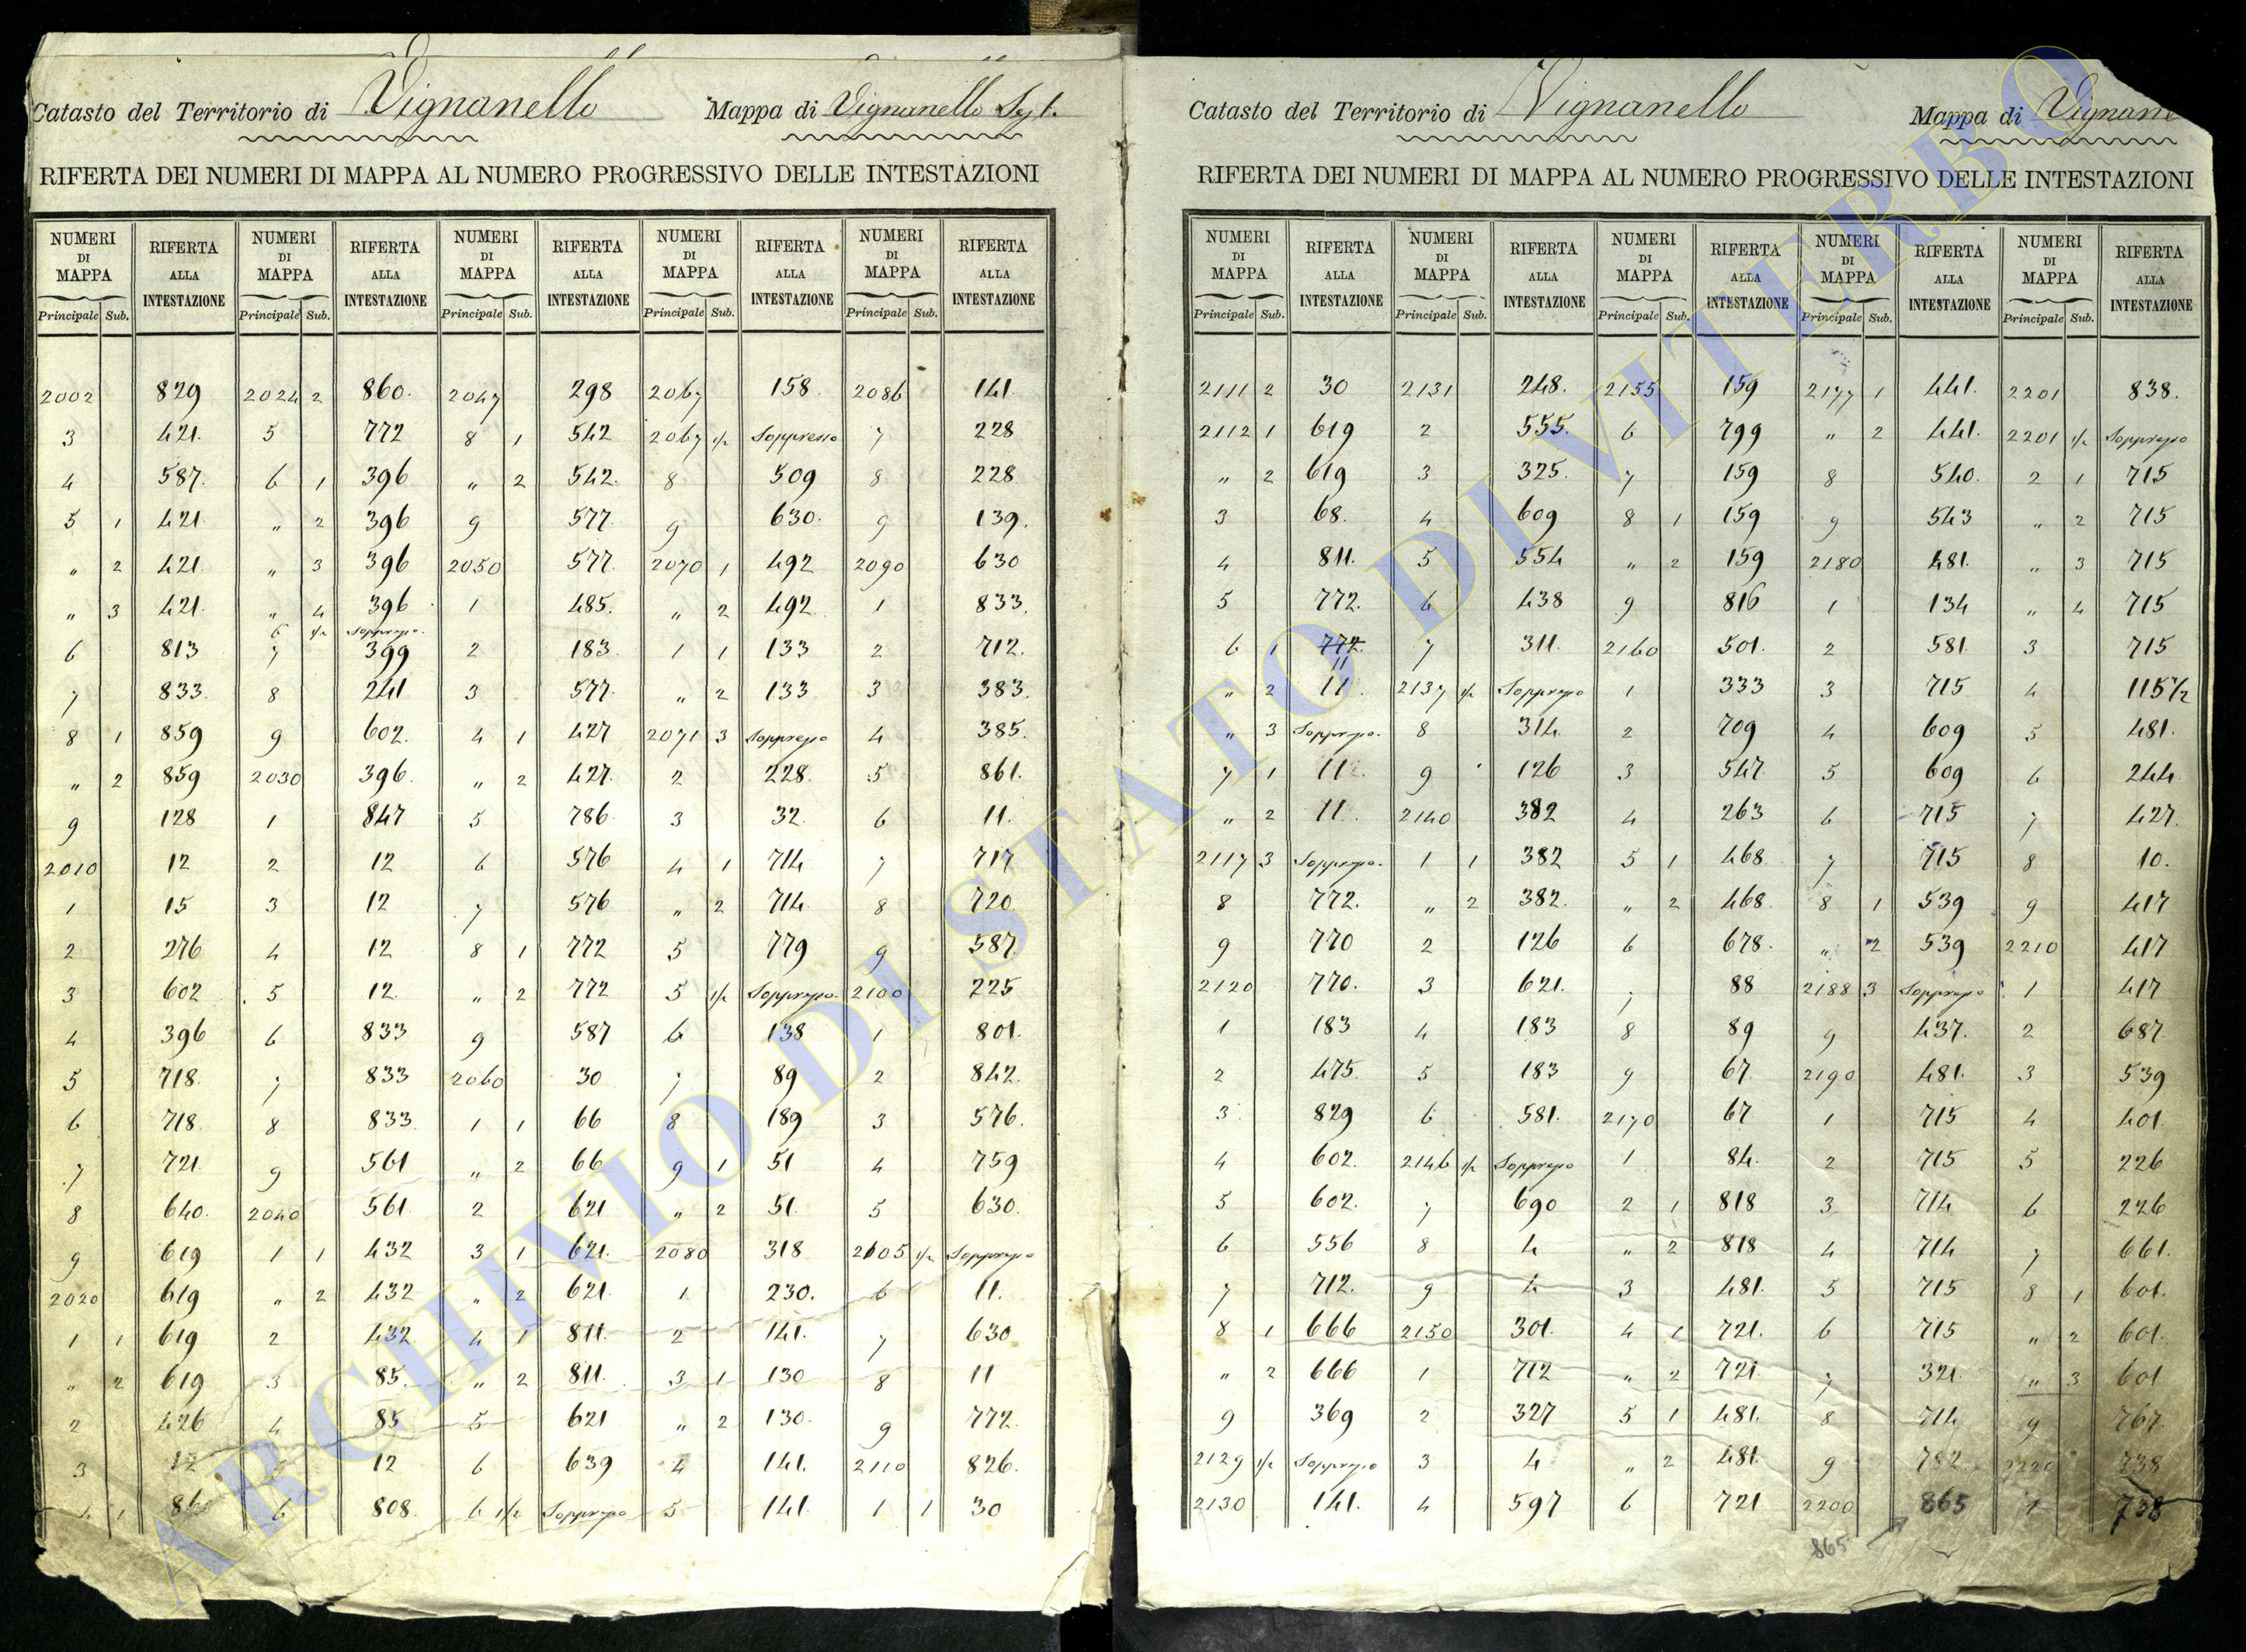 Catasto del Territorio di Vignanello Mappa di Vignanello
RIFERTA DEI NUMERI DI MAPPA AL NUMERO PROGRESSIVO DELLE INTESTAZIONI
NUMERI DI MAPPA RIFERTA ALLA INTESTAZIONE NUMERI DI MAPPA RIFERTA ALLA INTESTAZIONE NUMERI DI MAPPA RIFERTA ALLA INTESTAZIONE NUMERI DI MAPPA RIFERTA ALLA INTESTAZIONE NUMERI DI MAPPA RIFERTA ALLA INTESTAZIONE
Principale Sub. Principale Sub. Principale Sub. Principale Sub. Principale Sub.
2002 829 2024 2 860. 2047 298 2067 158 2086 141
3 421. 5 772 8 1 542 2067 1/2 Soppresso 7 228
4 587. 6 1 396 " 2 542. 8 509 8 228
5 1 421 " 2 396 9 577 9 630. 9 139.
" 2 421 " 3 396 2050 577 2070 1 492 2090 630
" 3 421 " 4 396 1 485. " 2 492 1 833.
6 1/2 Soppresso.
6 813 7 399 2 183 1 1 133 2 712.
7 833 8 241 3 577 " 2 133 3 383.
8 1 859 9 602. 4 1 427 2071 3 Soppresso 4 385.
" 2 859 2030 396. " 2 427. 2 228. 5 861.
9 128 1 847 5 786 3 32 6 11.
2010 12 2 12 6 576 4 1 714 7 717
1 15 3 12 7 576 " 2 714 8 720
2 276 4 12 8 1 772 5 779 9 587.
3 602 5 12 " 2 772 5 1/2 Soppresso. 2100 225
4 396 6 833 9 587 6 138 1 801.
5 718. 7 833 2060 30 7 89 2 842.
6 718 8 833 1 1 66 8 189 3 576.
7 721 9 561 " 2 66 9 1 51 4 759
8 640. 2040 561 2 621 " 2 51 5 630.
9 619 1 1 432 3 1 621. 2080 318 2105 1/2 Soppresso
2020 619 " 2 432 " 2 621 1 230. 6 11.
1 1 619 2 432 4 1 811. 2 141. 7 630
" 2 619 3 85. " 2 811. 3 1 130 8 11
2 426 4 85 5 621 " 2 130. 9 772.
3 12 12 6 639 4 141. 2110 826.
4 1 860 6 808 6 1/2 Soppresso 5 141. 1 1 30
Catasto del Territorio di Vignanello Mappa di Vignane
RIFERTA DEI NUMERI DI MAPPA AL NUMERO PROGRESSIVO DELLE INTESTAZIONI
NUMERI DI MAPPA RIFERTA ALLA INTESTAZIONE NUMERI DI MAPPA RIFERTA ALLA INTESTAZIONE NUMERI DI MAPPA RIFERTA ALLA INTESTAZIONE NUMERI DI MAPPA RIFERTA ALLA INTESTAZIONE NUMERI DI MAPPA RIFERTA ALLA INTESTAZIONE
Principale Sub. Principale Sub. Principale Sub. Principale Sub. Principale Sub.
2111 2 30 2131 248. 2155 159 2177 1 441. 2201 838.
2112 1 619 2 555. 6 799 " 2 441. 2201 1/2 Soppresso
" 2 619 3 325. 7 159 8 540. 2 1 715
3 68. 4 609 8 1 159 9 543 " 2 715
4 811. 5 554 " 2 159 2180 481. " 3 715
5 772. 6 438 9 816 1 134 " 4 715
6 1 772. 7 311. 2160 501. 2 581 3 715
11
" 2 11. 2137 1/2 Soppresso 1 333 3 715 4 115 1/2
" 3 Soppresso. 8 314 2 709 4 609 5 481.
7 1 11. 9 126 3 547 5 609 6 244
" 2 11. 2140 382 4 263 6 715 7 427.
2117 3 Soppresso. 1 1 382 5 1 468 7 715 8 10.
8 772. " 2 382. " 2 468. 8 1 539 9 417
9 770 2 126 6 678. " 2 539 2210 417
2120 770. 3 621. 7 88 2188 3 Soppresso 1 417
1 183 4 183 8 89 9 437. 2 687.
2 475. 5 183 9 67 2190 481. 3 539
3 829 6 581. 2170 67 1 715 4 401.
4 602. 2146 1/2 Soppresso 1 84. 2 715 5 226
5 602. 7 690 2 1 818 3 714 6 226
6 556 8 4 " 2 818 4 714 7 661.
7 712. 9 4 3 481. 5 715 8 1 601.
8 1 666 2150 301. 4 1 721. 6 715 " 2 601.
" 2 666 1 712 " 2 721 7 321. " 3 601
9 369 2 327 5 1 481. 8 714 9 767.
2129 1/2 Soppresso 3 4 " 2 481. 9 782 2220 738
2130 141. 4 597 6 721 2200 865 1 738
865
ARCHIVIO DI STATO DI VITERBO